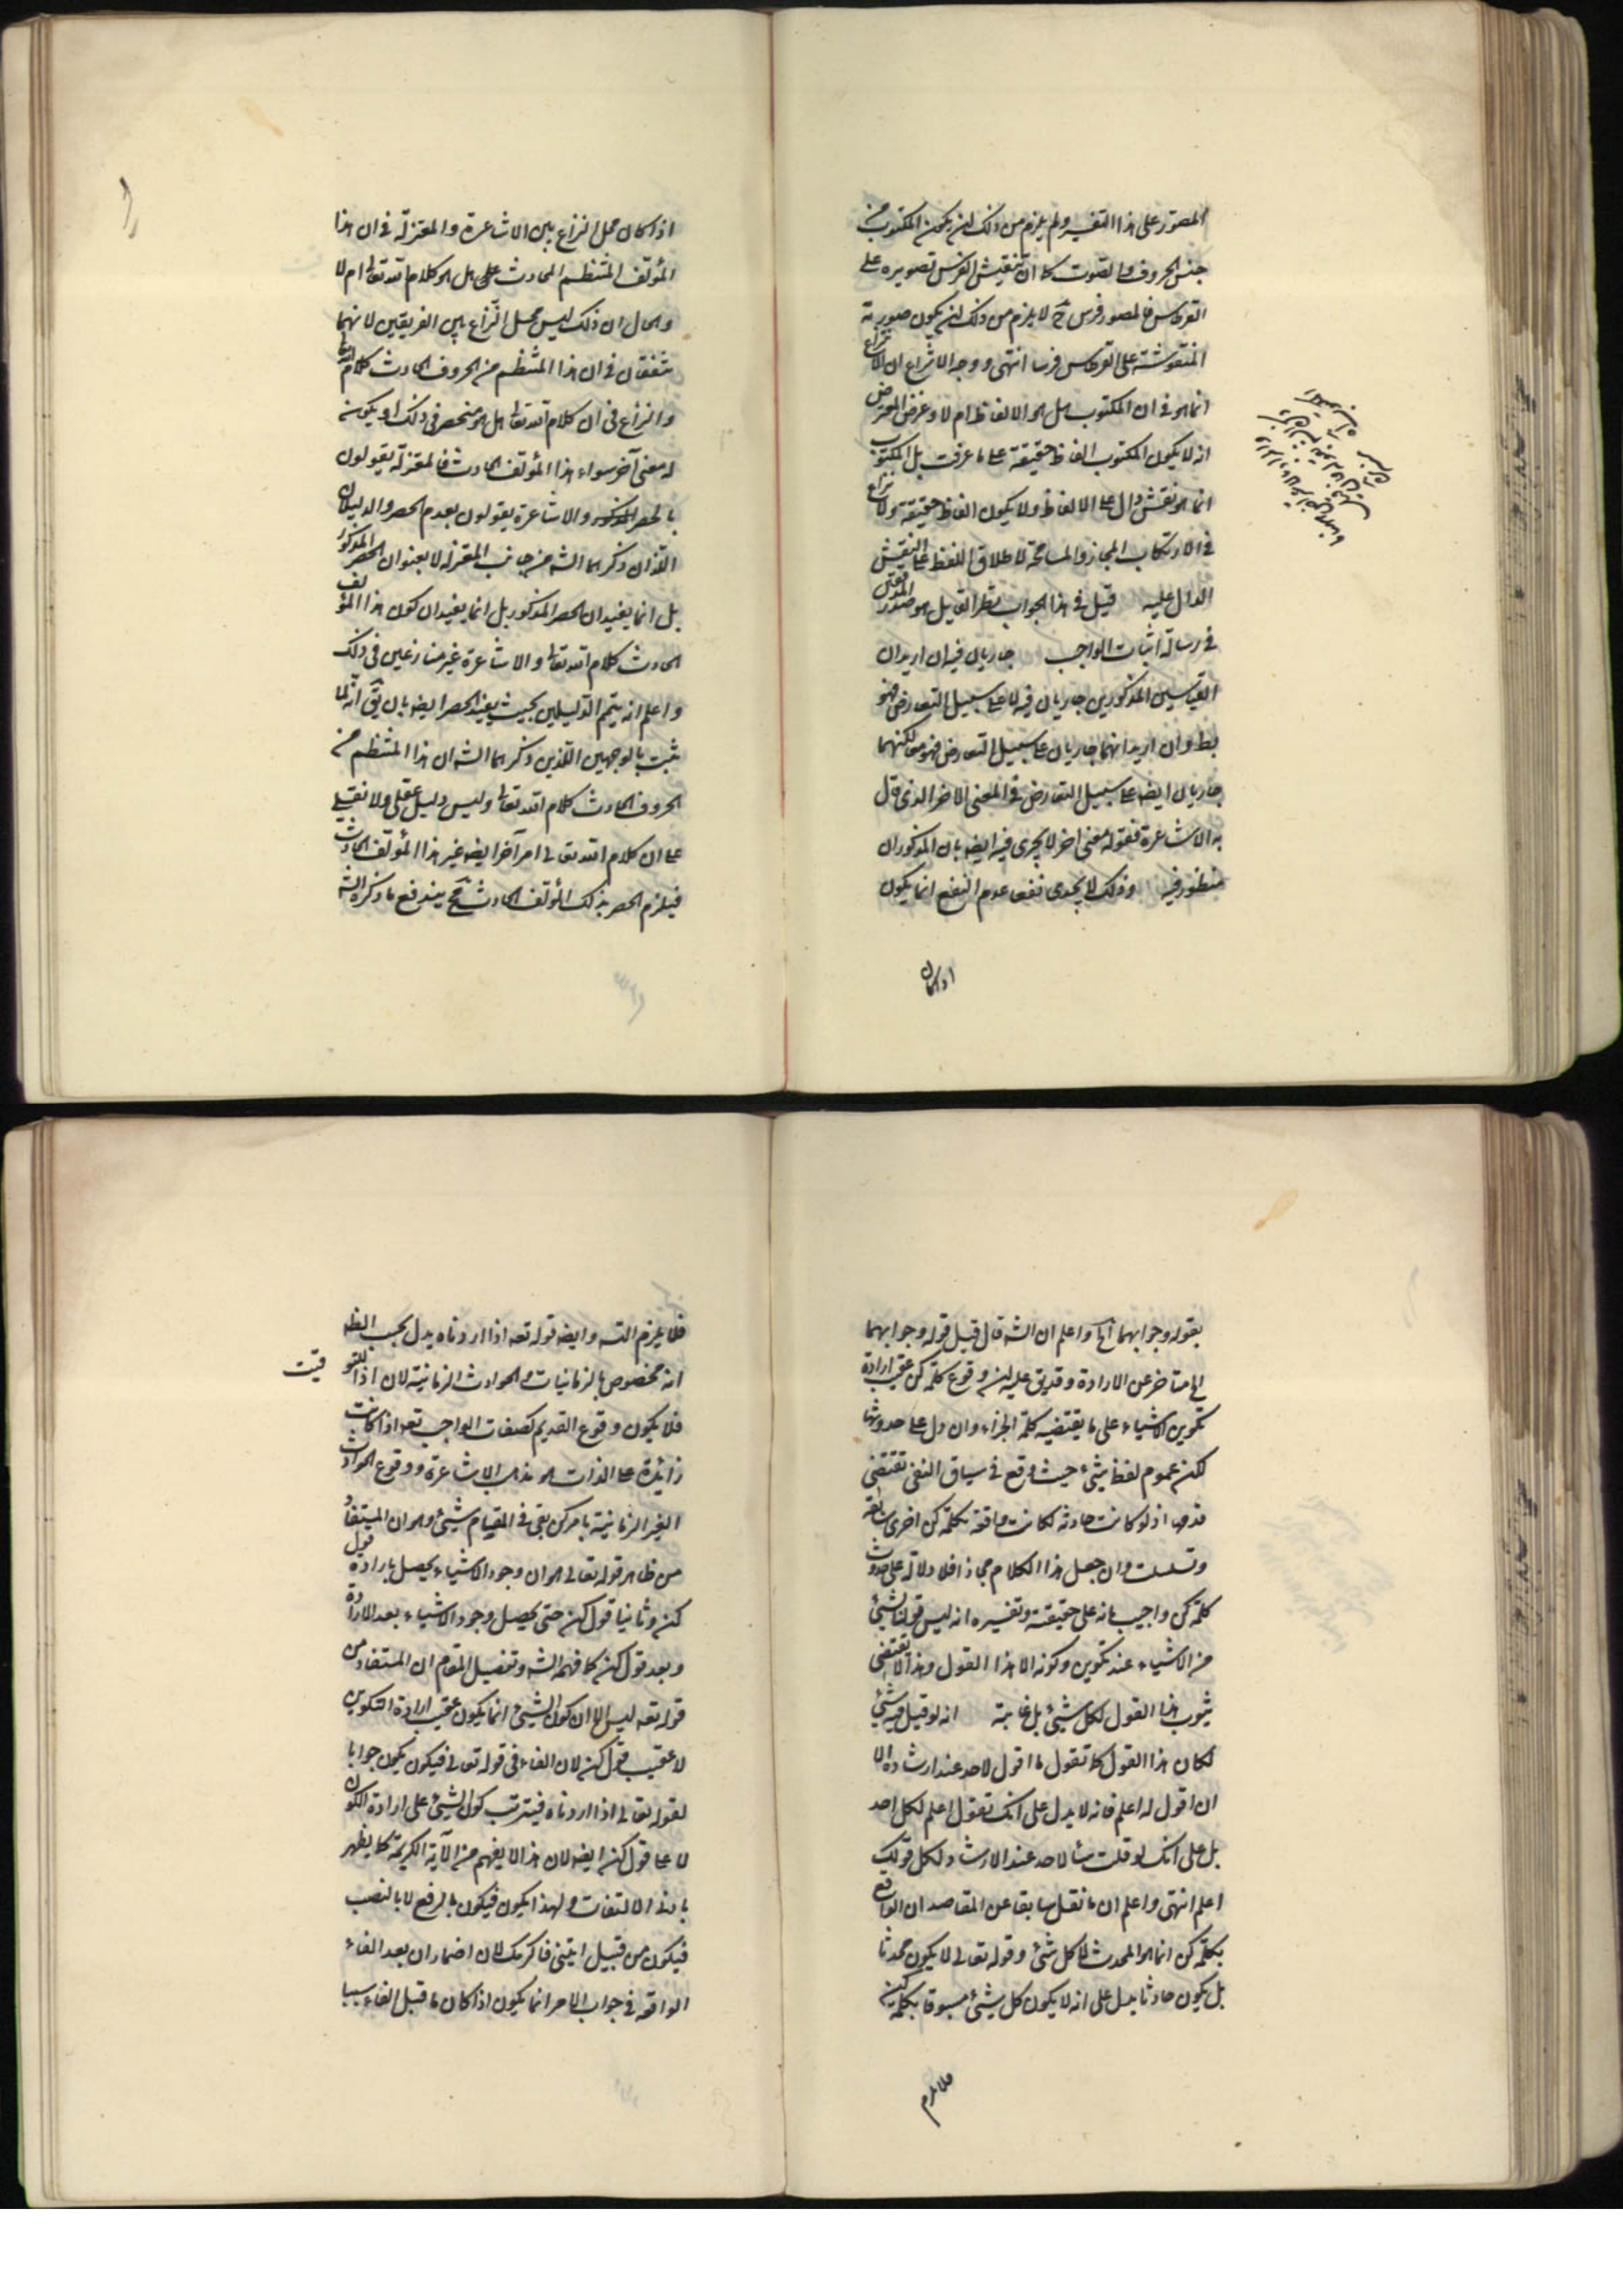 المصوّر على هذا التفسير ولم يلزم من ذلك ان يكون المكتوب من
جنس الحروف والصوت كما ان تنقيش الفرس تصويره على
القرطاس فالمصور فرس ح لا يلزم من ذلك ان يكون صورته
المنقوشته على القرطاس فرسا انتهى ووجه الانزاع ان النزاع
انما هو في ان المكتوب هل هو الالفاظ ام لا وغرض المعترض
انه لا يكون المكتوب الفاظ حقيقة على ما عرفت بل المكتوب
انما هو نقش دال على الالفاظ ولا يكون الفاظ حقيقة ولا نزاع
في الارتكاب المجاز والمسامحة لاطلاق اللفظ على النقش
الدال عليه قيل في هذا الجواب نظر القايل هو صدر المدقق
في رسالة اثبات الواجب جاريان فيه ان اريد ان
القياسين المذكورين جاريان فيه لا على سبيل التعارض فهو
بط وان اريد انهما جاريان على سبيل التعارض فهو مم لكنهما
جاريان ايضه على سبيل التعارض في المعنى الاخر الذي قال
به الاشاعرة فقوله معنى اخر لا يجرى فيه ايضه بان المذكوران
منظور فيه وذلك لا يجدى نفعا عدم النفع انما يكون
اذا كان
اذا كان محل النزاع بين الاشاعرة والمعتزلة في ان هذا
المؤلف المنتظم الحادث على هل هو كلام الله تعالى ام لا
والحال ان ذلك ليس محل النزاع بين الفريقين لانهما
متفقان في ان هذا المنتظم من الحروف الحادث كلام الله تعالى
والنزاع في ان كلام الله تعالى هل هو منحصر في ذلك او يكون
له معنى آخر سواء هذا المؤلف الحادث فالمعتزلة يقولون
بالحصر المذكور والاشاعرة يقولون بعدم الحصر والدليلان
اللذان ذكرهما الشه من جانب المعتزلة لا يعنوان الحصر المذكور
بل انما يفيدان الحصر المذكور بل انما يفيدان كون هذا المؤلف
الحادث كلام الله تعالى والاشاعرة غير منازعين في ذلك
واعلم انه يتم الدليلين بحيث يفيد الحصر ايضه بان يق انه لما
ثبت بالوجهين اللذين ذكرهما الشه ان هذا المنتظم من
الحروف الحادث كلام الله تعالى وليس دليل عقلى ولا نقلى
على ان كلام الله تعالى امر آخر ايضه غير هذا المؤلف الحادث
فيلزم الحصر بذلك المؤلف الحادث فح يندفع ما ذكره الشه
بقوله وجوابهما آه واعلم ان الشه قال قبل قوله وجوابهما
اى متاخر عن الارادة وقد يق عليه ان وقوع كلمة كن عقيب ارادة
تكوين الاشياء على ما يقتضيه كلمة الجزاء وان دل على حدوثها
لكن عموم لفظ شىء حيث وقع في سياق النفى تقتضى
قدمها اذ لو كانت حادثة لكانت واقعة بكلمة كن اخرى سابقة
وتسلسلت وان جعل هذا الكلام مجازا فلا دلالة على حدوث
كلمة كن واجيب بانه على حقيقته وتفسيره انه ليس قولنا لشئ
من الاشياء عند تكوين وكونه الا هذا القول وهذا لا يقتضى
ثبوت هذا القول لكل شيئ بل غايته انه لو قيل فيه شئ
لكان هذا القول كما تقول ما اقول لاحد عند ارشاده الا
ان اقول له اعلم فانه لا يدل على انك تقول اعلم لكل احد
بل على انك لو قلت شأ لاحد عند الارشاد لكل قولك
اعلم انتهى واعلم ان ما نقل سابقا عن المقاصد ان الواقع
بكلمة كن انما هو المحدث لا كل شئ وقوله تعالى لا يكون محدثا
بل يكون حادثا يدل على انه لا يكون كل شيئ مسبوقا بكلمة كن
فلا يلزم
فلا يلزم التسه وايضه قوله تعه اذا اردناه يدل بحسب الظه
انه مخصوص بالزمانيات والحوادث الزمانية لان اذا للتو
قيت
فلا يكون وقوع القديم كصفات الواجب تعه اذا كانت
زائدة على الذات هو مذهب الاشاعرة ووقوع الحوادث
الغير الزمانية بامر كن بقى في المقام شيئ وهو ان المستفاد
من ظاهر قوله تعالى هو ان وجود الاشياء يحصل بارادة قول
كن وثانيا قول كن حتى يحصل وجود الاشياء بعد الارادة
وبعد قول كن كما فهمه الشه وتفصيل المقام ان المستفاد من
قوله تعه ليس الا ان كون الشيئ انما يكون عقيب ارادة التكوين
لا عقيب قول كن لان الفاء في قوله تعالى فيكون يكون جوابا
لقوله تعالى اذا اردناه فيترتب كون الشيئ على ارادة الكون
لا على قول كن ايضه لان هذا لا يفهم من الآية الكريمة كما يظهر
بادنى الالتفات ولهذا يكون فيكون بالرفع لا بالنصب
فيكون من قبيل ايتنى فاكرمك لان اضمار ان بعد الفاء
الواقعة في جواب الامر انما يكون اذا كان ما قبل الفاء سببا